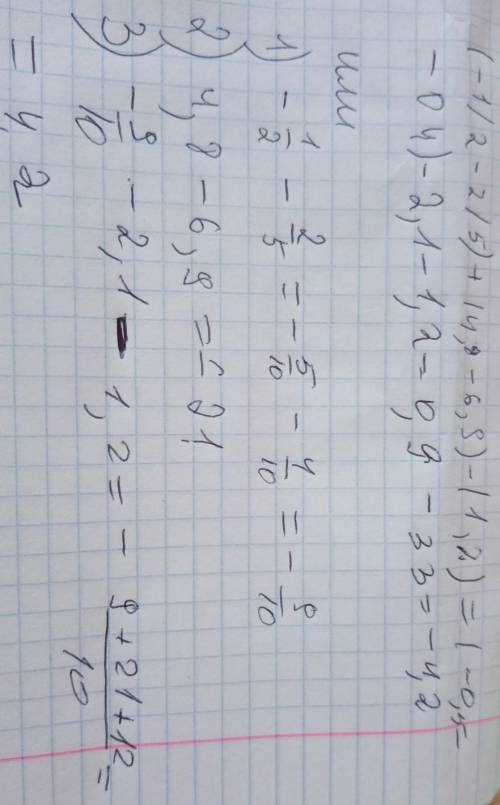 (-1/2-2/5)+(4,8-6,9)-(1,2)=(-0,5-
-0,4)-2,1-1,2=0,9-3,3=-4,2
или
1) -1/2 - 2/5 = -5/10 - 4/10 = -9/10
2) 4,8-6,9=
3) -9/10 - 2,1 - 1,2 = - (9+21+12)/10 =
= 4,2